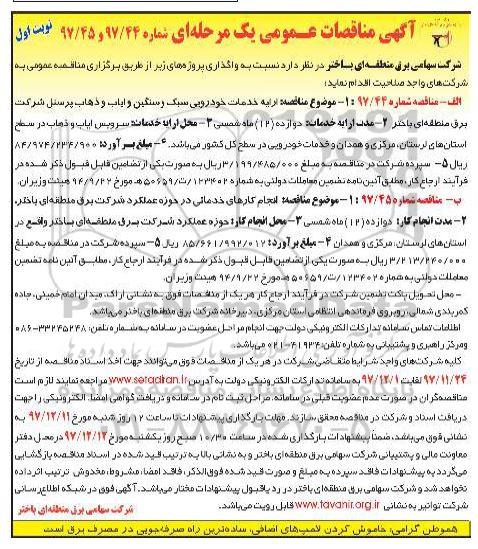 آگهی مناقصات عمومی یک مرحله‌ای شماره ۹۷/۴۴ و ۹۷/۴۵
نوبت اول
شرکت سهامی برق منطقه‌ای باختر در نظر دارد نسبت به واگذاری پروژه‌های زیر از طریق برگزاری مناقصه عمومی به
شرکت‌های واجد صلاحیت اقدام نماید:
الف- مناقصه شماره ۹۷/۴۴: ۱- موضوع مناقصه: ارایه خدمات خودرویی سبک و سنگین و ایاب و ذهاب پرسنل شرکت
برق منطقه‌ای باختر ۲- مدت ارایه خدمات: دوازده (۱۲) ماه شمسی ۳- محل ارایه خدمات: سرویس ایاب و ذهاب در سطح
استان‌های لرستان، مرکزی و همدان و خدمات خودرویی در سطح کل کشور می‌باشد. ۴- مبلغ برآورد: ۸۴/۹۷۴/۲۳۴/۹۰۰
ریال ۵- سپرده شرکت در مناقصه به مبلغ ۳/۱۹۹/۴۸۵/۰۰۰ ریال به صورت یکی از تضامین قابل قبول ذکر شده در
فرآیند ارجاع کار، مطابق آئین نامه تضمین معاملات دولتی به شماره ۱۲۳۴۰۲/ت۵۰۶۵۹هـ مورخ ۹۴/۹/۲۲ هیئت وزیران.
ب- مناقصه شماره ۹۷/۴۵: ۱- موضوع مناقصه: انجام کارهای خدماتی در حوزه عملکرد شرکت برق منطقه‌ای باختر.
۲- مدت انجام کار: دوازده (۱۲) ماه شمسی ۳- محل انجام کار: حوزه عملکرد شرکت برق منطقه‌ای باختر واقع در
استان‌های لرستان، مرکزی و همدان ۴- مبلغ برآورد: ۸۵/۶۶۱/۹۹۲/۰۱۲ ریال ۵- سپرده شرکت در مناقصه به مبلغ
۳/۲۱۳/۲۴۰/۰۰۰ ریال به صورت یکی از تضامین قابل قبول ذکر شده در فرآیند ارجاع کار، مطابق آئین نامه تضمین
معاملات دولتی به شماره ۱۲۳۴۰۲/ت۵۰۶۵۹هـ مورخ ۹۴/۹/۲۲ هیئت وزیران.
- محل تحویل پاکت تضمین شرکت در فرآیند ارجاع کار هر یک از مناقصات فوق به نشانی اراک، میدان امام خمینی، جاده
کمربندی شمالی، روبروی فرماندهی انتظامی استان مرکزی، دبیرخانه شرکت برق منطقه‌ای باختر می‌باشد.
اطلاعات تماس سامانه تدارکات الکترونیکی دولت جهت انجام مراحل عضویت در سامانه به شماره تلفن: ۳۳۲۴۵۲۴۸-۰۸۶
و مرکز راهبری و پشتیبانی به شماره تلفن: ۴۱۹۳۴-۰۲۱ می‌باشد.
کلیه شرکت‌های واجد شرایط متقاضی شرکت در هر یک از مناقصات فوق می‌توانند جهت اخذ اسناد مناقصه از تاریخ
۹۷/۱۱/۲۴ لغایت ۹۷/۱۲/۱ به سامانه تدارکات الکترونیکی دولت به آدرس www.setadiran.ir مراجعه نمایند لازم است
مناقصه‌گران در صورت عدم عضویت قبلی در سامانه، مراحل ثبت نام در سامانه و دریافت گواهی امضا الکترونیکی را جهت
دریافت اسناد و شرکت در مناقصه محقق سازند. مهلت بارگذاری پیشنهادات تا ساعت ۱۲ روز شنبه مورخ ۹۷/۱۲/۱۱ به
نشانی فوق می‌باشد، ضمناً پیشنهادات بارگذاری شده در ساعت ۱۰/۳۰ صبح روز یکشنبه مورخ ۹۷/۱۲/۱۲ در محل دفتر
معاونت مالی و پشتیبانی شرکت سهامی برق منطقه‌ای باختر و به نشانی بالا به ترتیب قید شده در اسناد مناقصه بازگشایی
می‌گردد به پیشنهادات فاقد سپرده به مبلغ و صورت قید شده فوق‌الذکر، فاقد امضا، مشروط، مخدوش ترتیب اثر داده
نخواهد شد و شرکت سهامی برق منطقه‌ای باختر در رد یا قبول پیشنهادات مختار می‌باشد. آگهی فوق در شبکه اطلاع‌رسانی
شرکت توانیر به نشانی www.tavanir.org.ir قابل رویت می‌باشد.
شرکت سهامی برق منطقه‌ای باختر
هموطن گرامی: خاموش کردن لامپ‌های اضافی، ساده‌ترین راه صرفه‌جویی در مصرف برق است